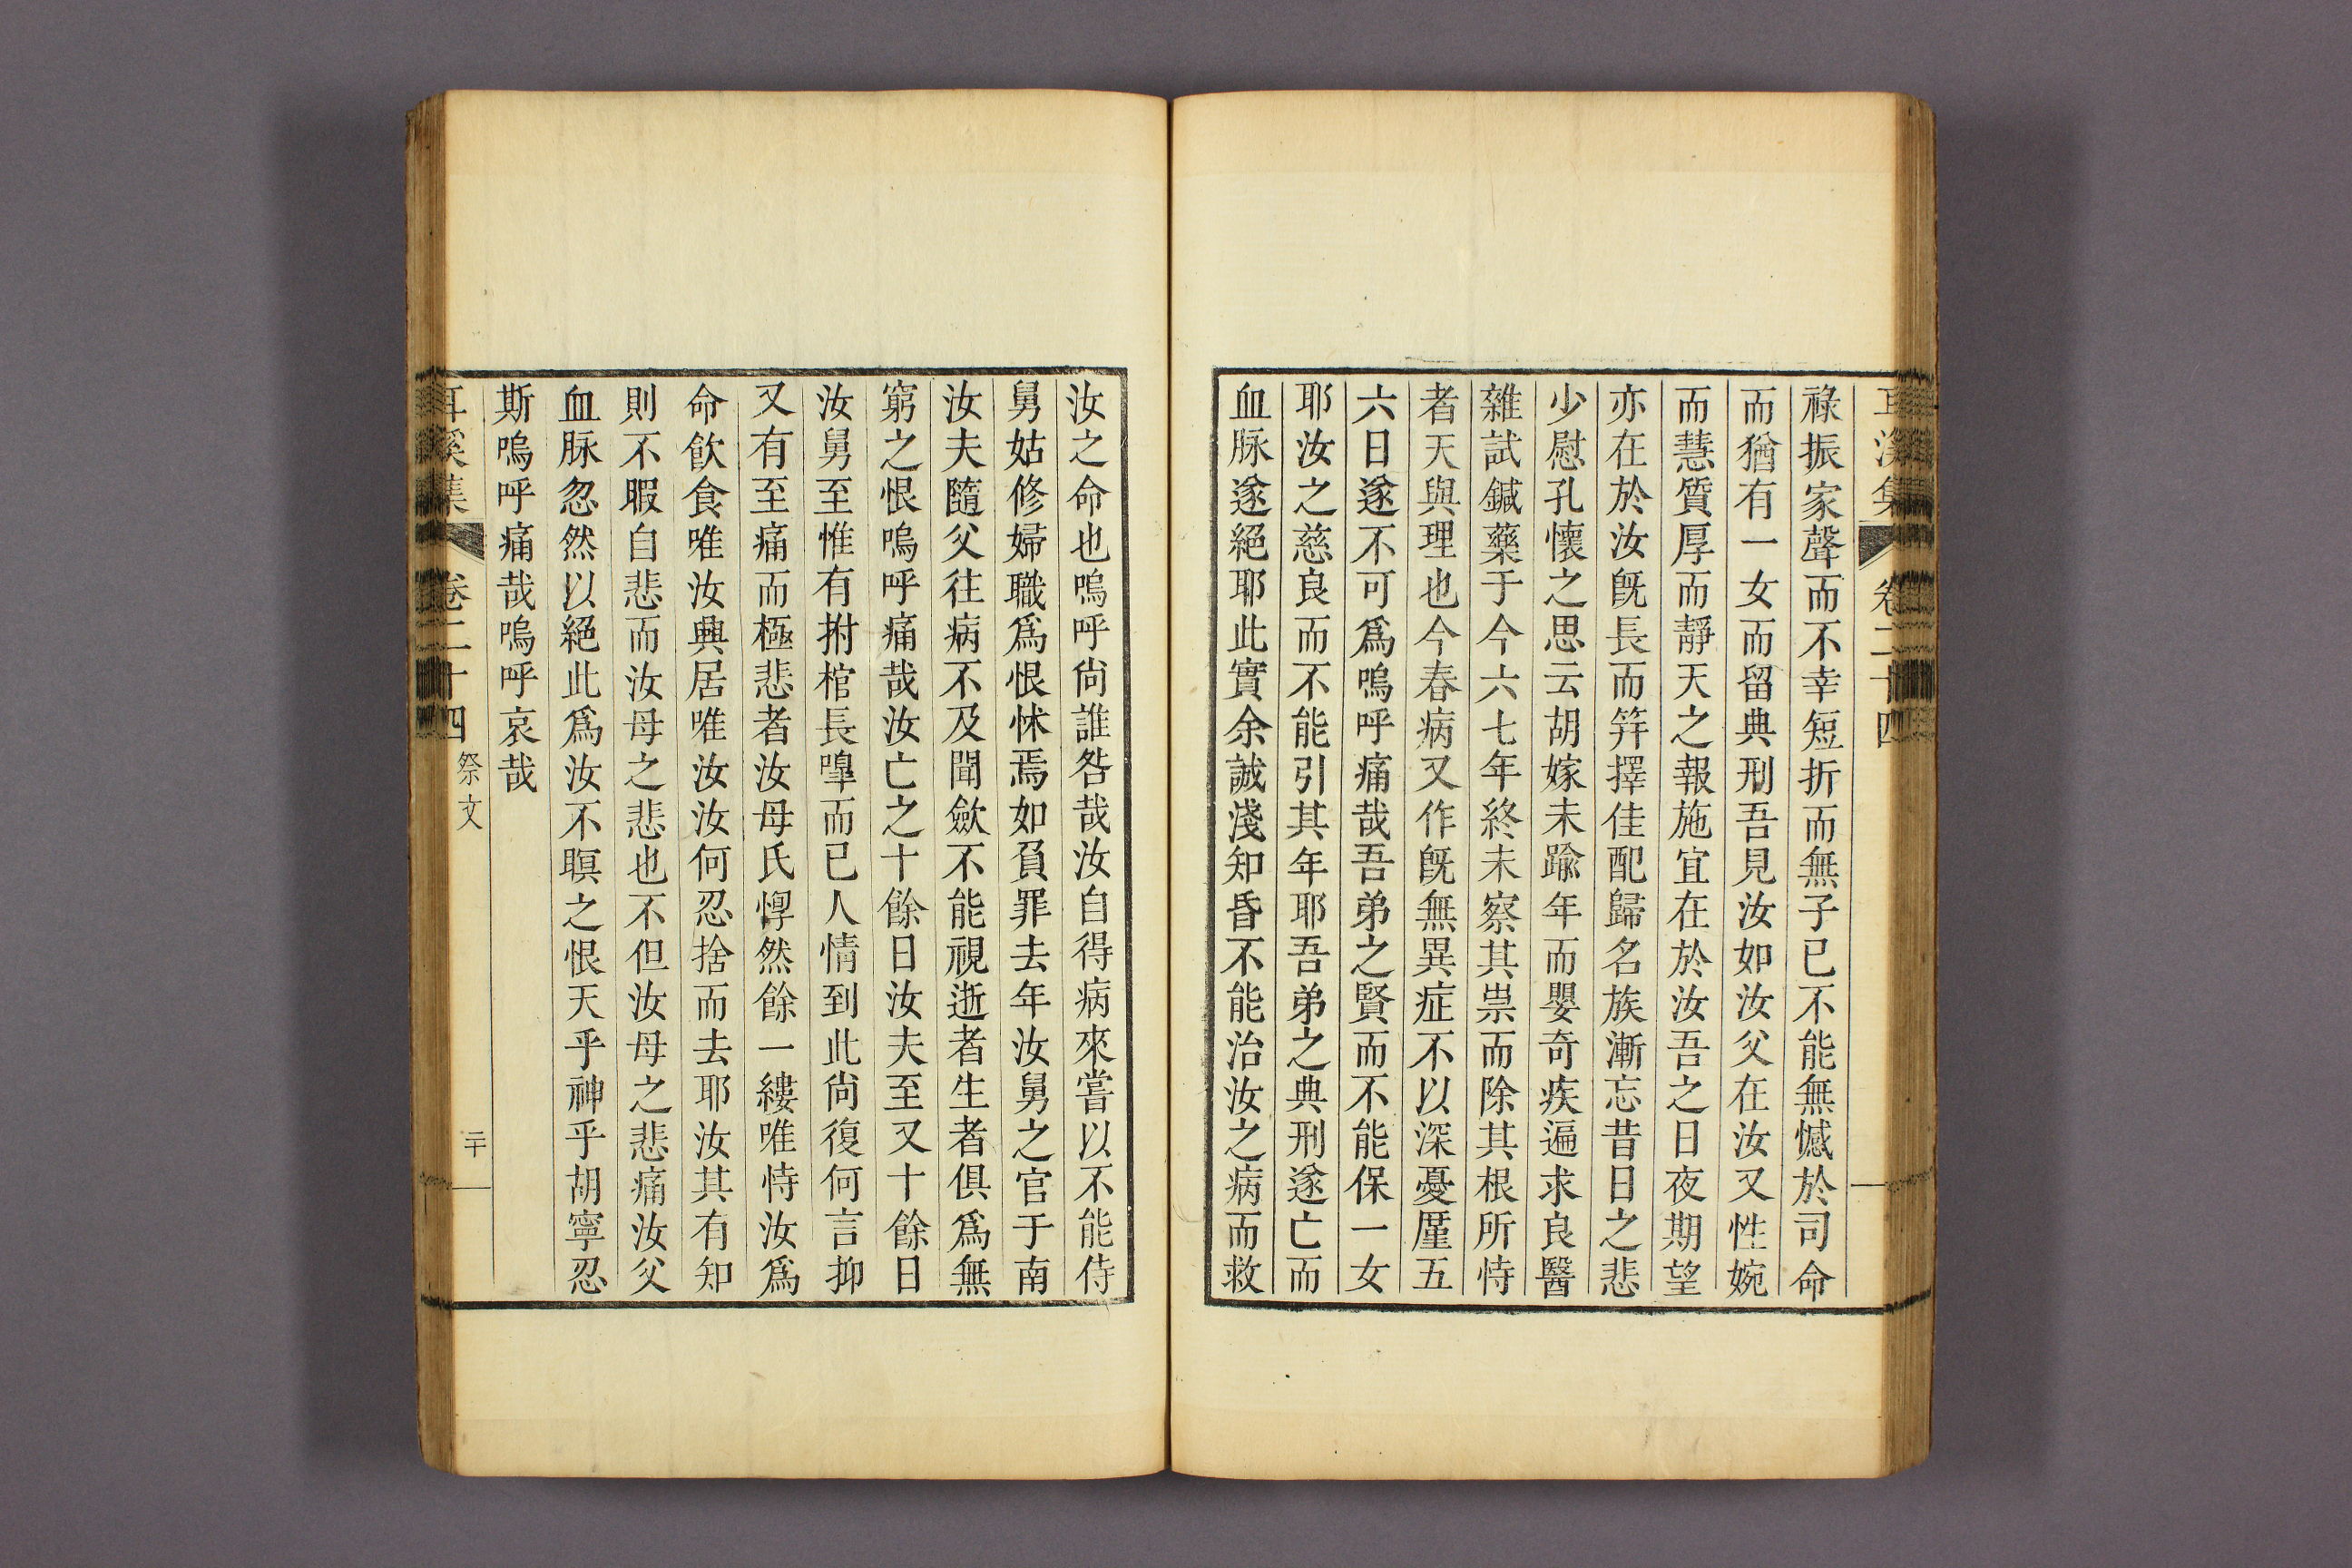 耳溪集 卷二十四
祿振家聲而不幸短折而無子已不能無憾於司命
而猶有一女而留典刑吾見汝如汝父在汝又性婉
而慧質厚而靜天之報施宜在於汝吾之日夜期望
亦在於汝旣長而笄擇佳配歸名族漸忘昔日之悲
少慰孔懷之思云胡嫁未踰年而嬰奇疾遍求良醫
雜試鍼藥于今六七年終未察其祟而除其根所恃
者天與理也今春病又作旣無異症不以深憂厪五
六日遂不可爲嗚呼痛哉吾弟之賢而不能保一女
耶汝之慈良而不能引其年耶吾弟之典刑遂亡而
血脉遂絕耶此實余誠淺知昏不能治汝之病而救
汝之命也嗚呼尙誰咎哉汝自得病來嘗以不能侍
舅姑修婦職爲恨怵焉如負罪去年汝舅之官于南
汝夫隨父往病不及聞斂不能視逝者生者俱爲無
窮之恨嗚呼痛哉汝亡之十餘日汝夫至又十餘日
汝舅至惟有拊棺長嘷而已人情到此尙復何言抑
又有至痛而極悲者汝母氏惸然餘一縷唯恃汝爲
命飮食唯汝興居唯汝汝何忍捨而去耶汝其有知
則不暇自悲而汝母之悲也不但汝母之悲痛汝父
血脉忽然以絕此爲汝不瞑之恨天乎神乎胡寧忍
斯嗚呼痛哉嗚呼哀哉
耳溪集 卷二十四 祭文 二十